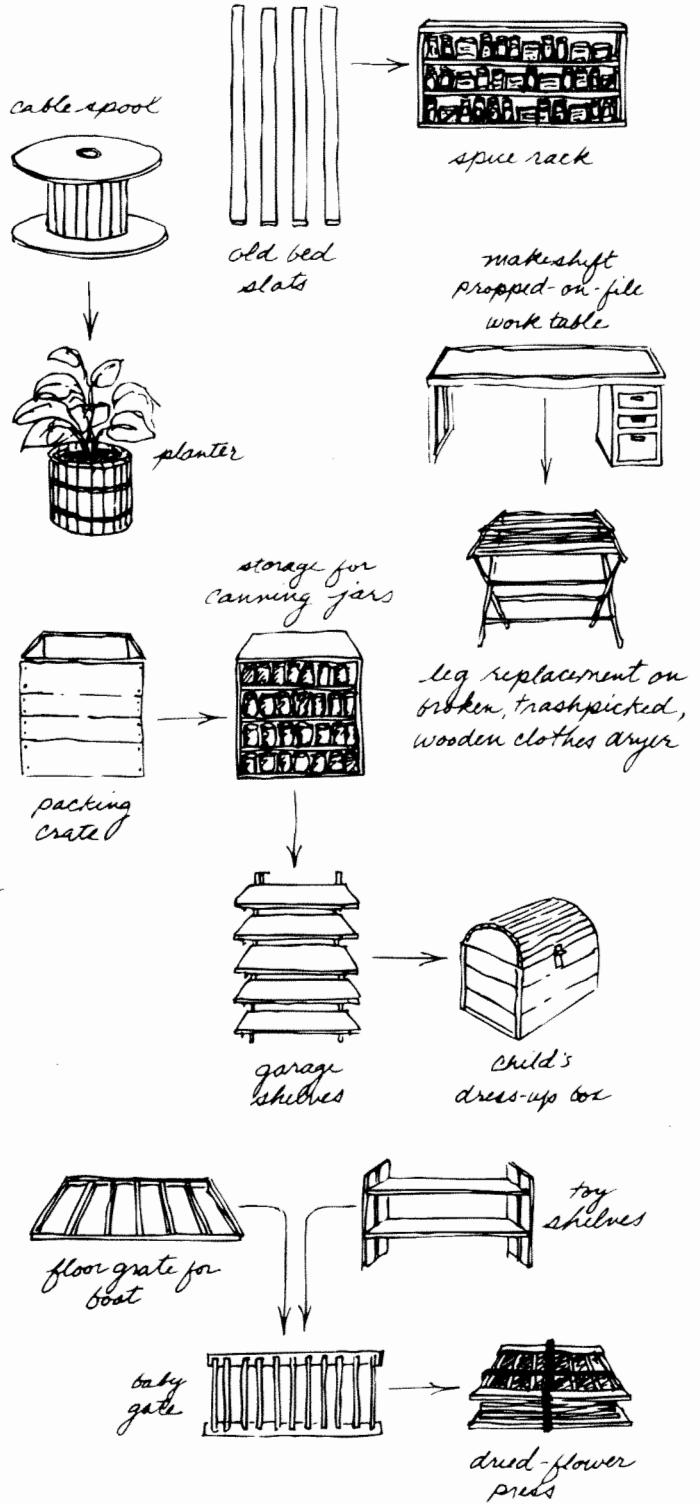 cable spool
old bed
slats
spice rack
makeshift
propped-on-file
work table
planter
storage for
canning jars
leg replacement on
broken, trashpicked,
wooden clothes dryer
packing
crate
garage
shelves
child's
dress-up box
floor grate for
boat
toy
shelves
baby
gate
dried-flower
press